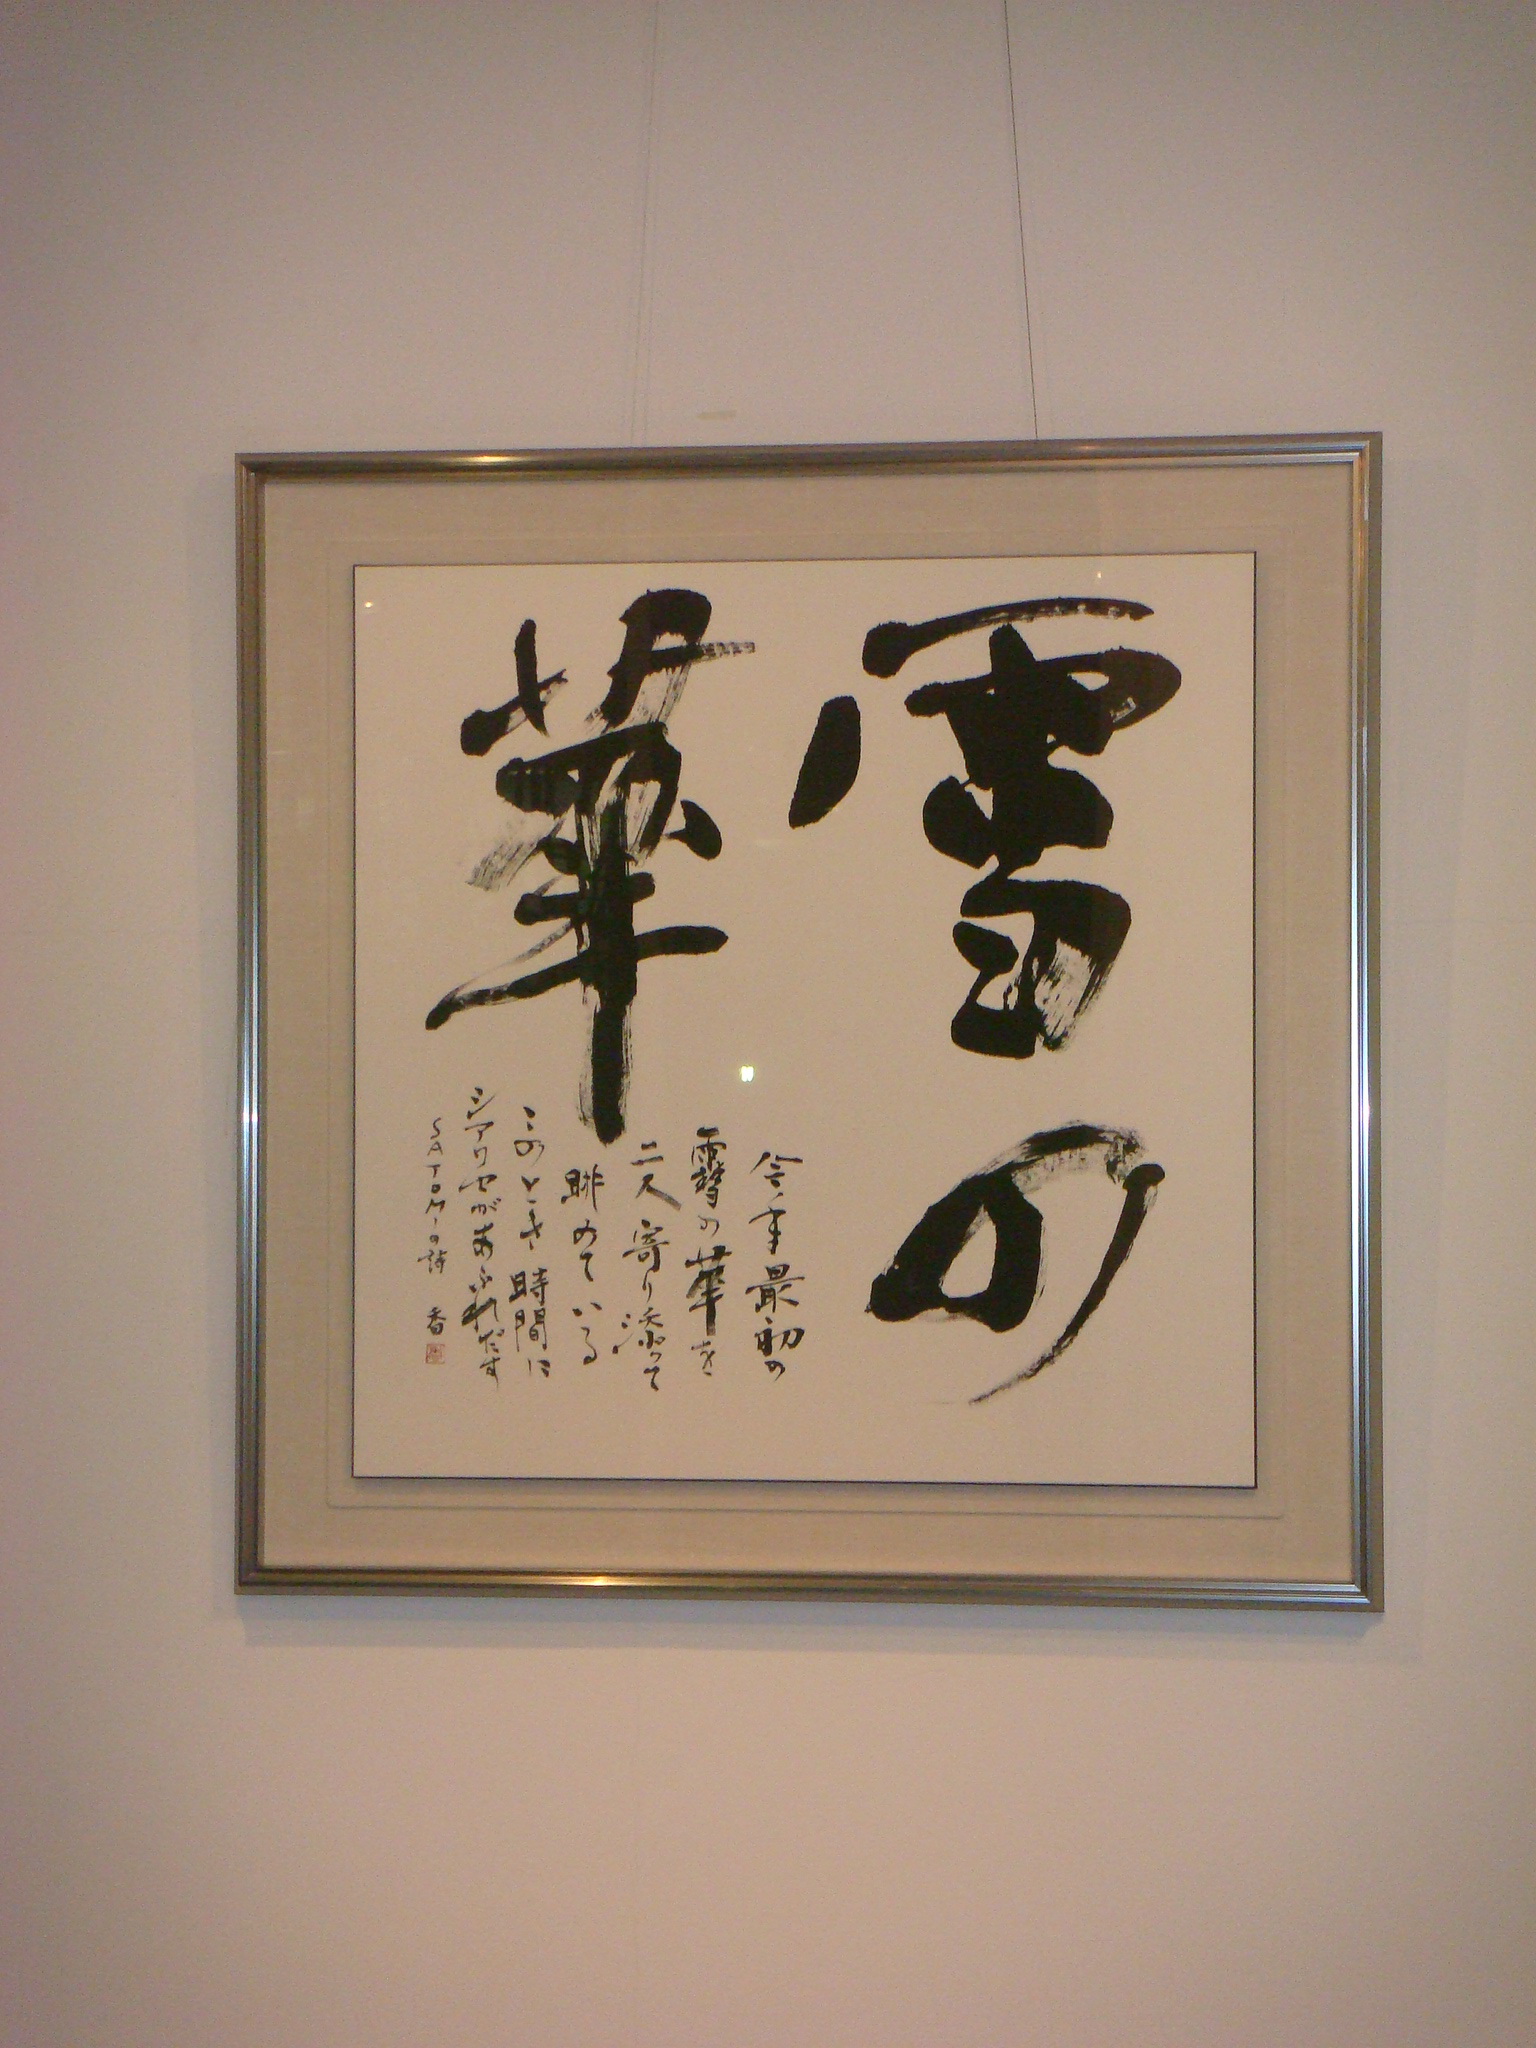 雪の
華
今年最初の
雪の華を
二人寄り添って
眺めている
このとき時間に
シアワセがあふれだす
SATOMIの詩 香